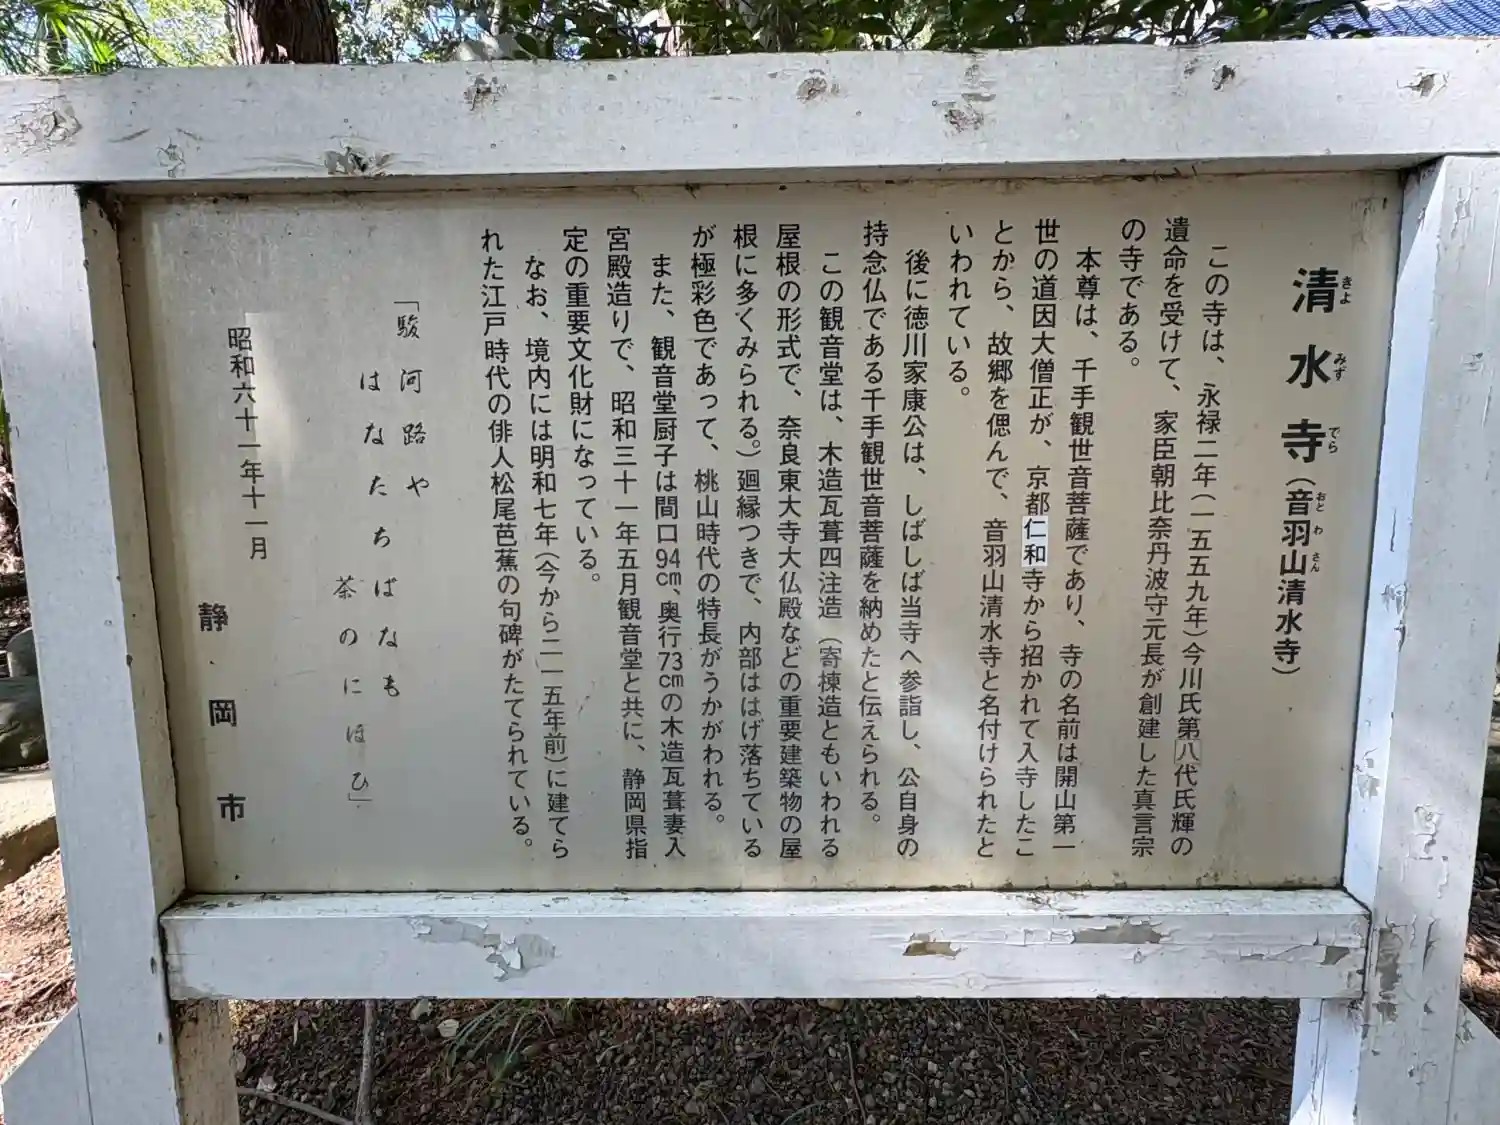 清水寺（音羽山清水寺）
きよ みず でら おと わ さん
この寺は、永禄二年（一五五九年）今川氏第八代氏輝の
遺命を受けて、家臣朝比奈丹波守元長が創建した真言宗
の寺である。
本尊は、千手観世音菩薩であり、寺の名前は開山第一
世の道因大僧正が、京都仁和寺から招かれて入寺したこ
とから、故郷を偲んで、音羽山清水寺と名付けられたと
いわれている。
後に徳川家康公は、しばしば当寺へ参詣し、公自身の
持念仏である千手観世音菩薩を納めたと伝えられる。
この観音堂は、木造瓦葺四注造（寄棟造ともいわれる
屋根の形式で、奈良東大寺大仏殿などの重要建築物の屋
根に多くみられる。）廻縁つきで、内部ははげ落ちている
が極彩色であって、桃山時代の特長がうかがわれる。
また、観音堂厨子は間口94cm、奥行73cmの木造瓦葺妻入
宮殿造りで、昭和三十一年五月観音堂と共に、静岡県指
定の重要文化財になっている。
なお、境内には明和七年（今から二一五年前）に建てら
れた江戸時代の俳人松尾芭蕉の句碑がたてられている。
「駿河路や
はなたちばなも
茶のにほひ」
昭和六十一年十一月
静岡市